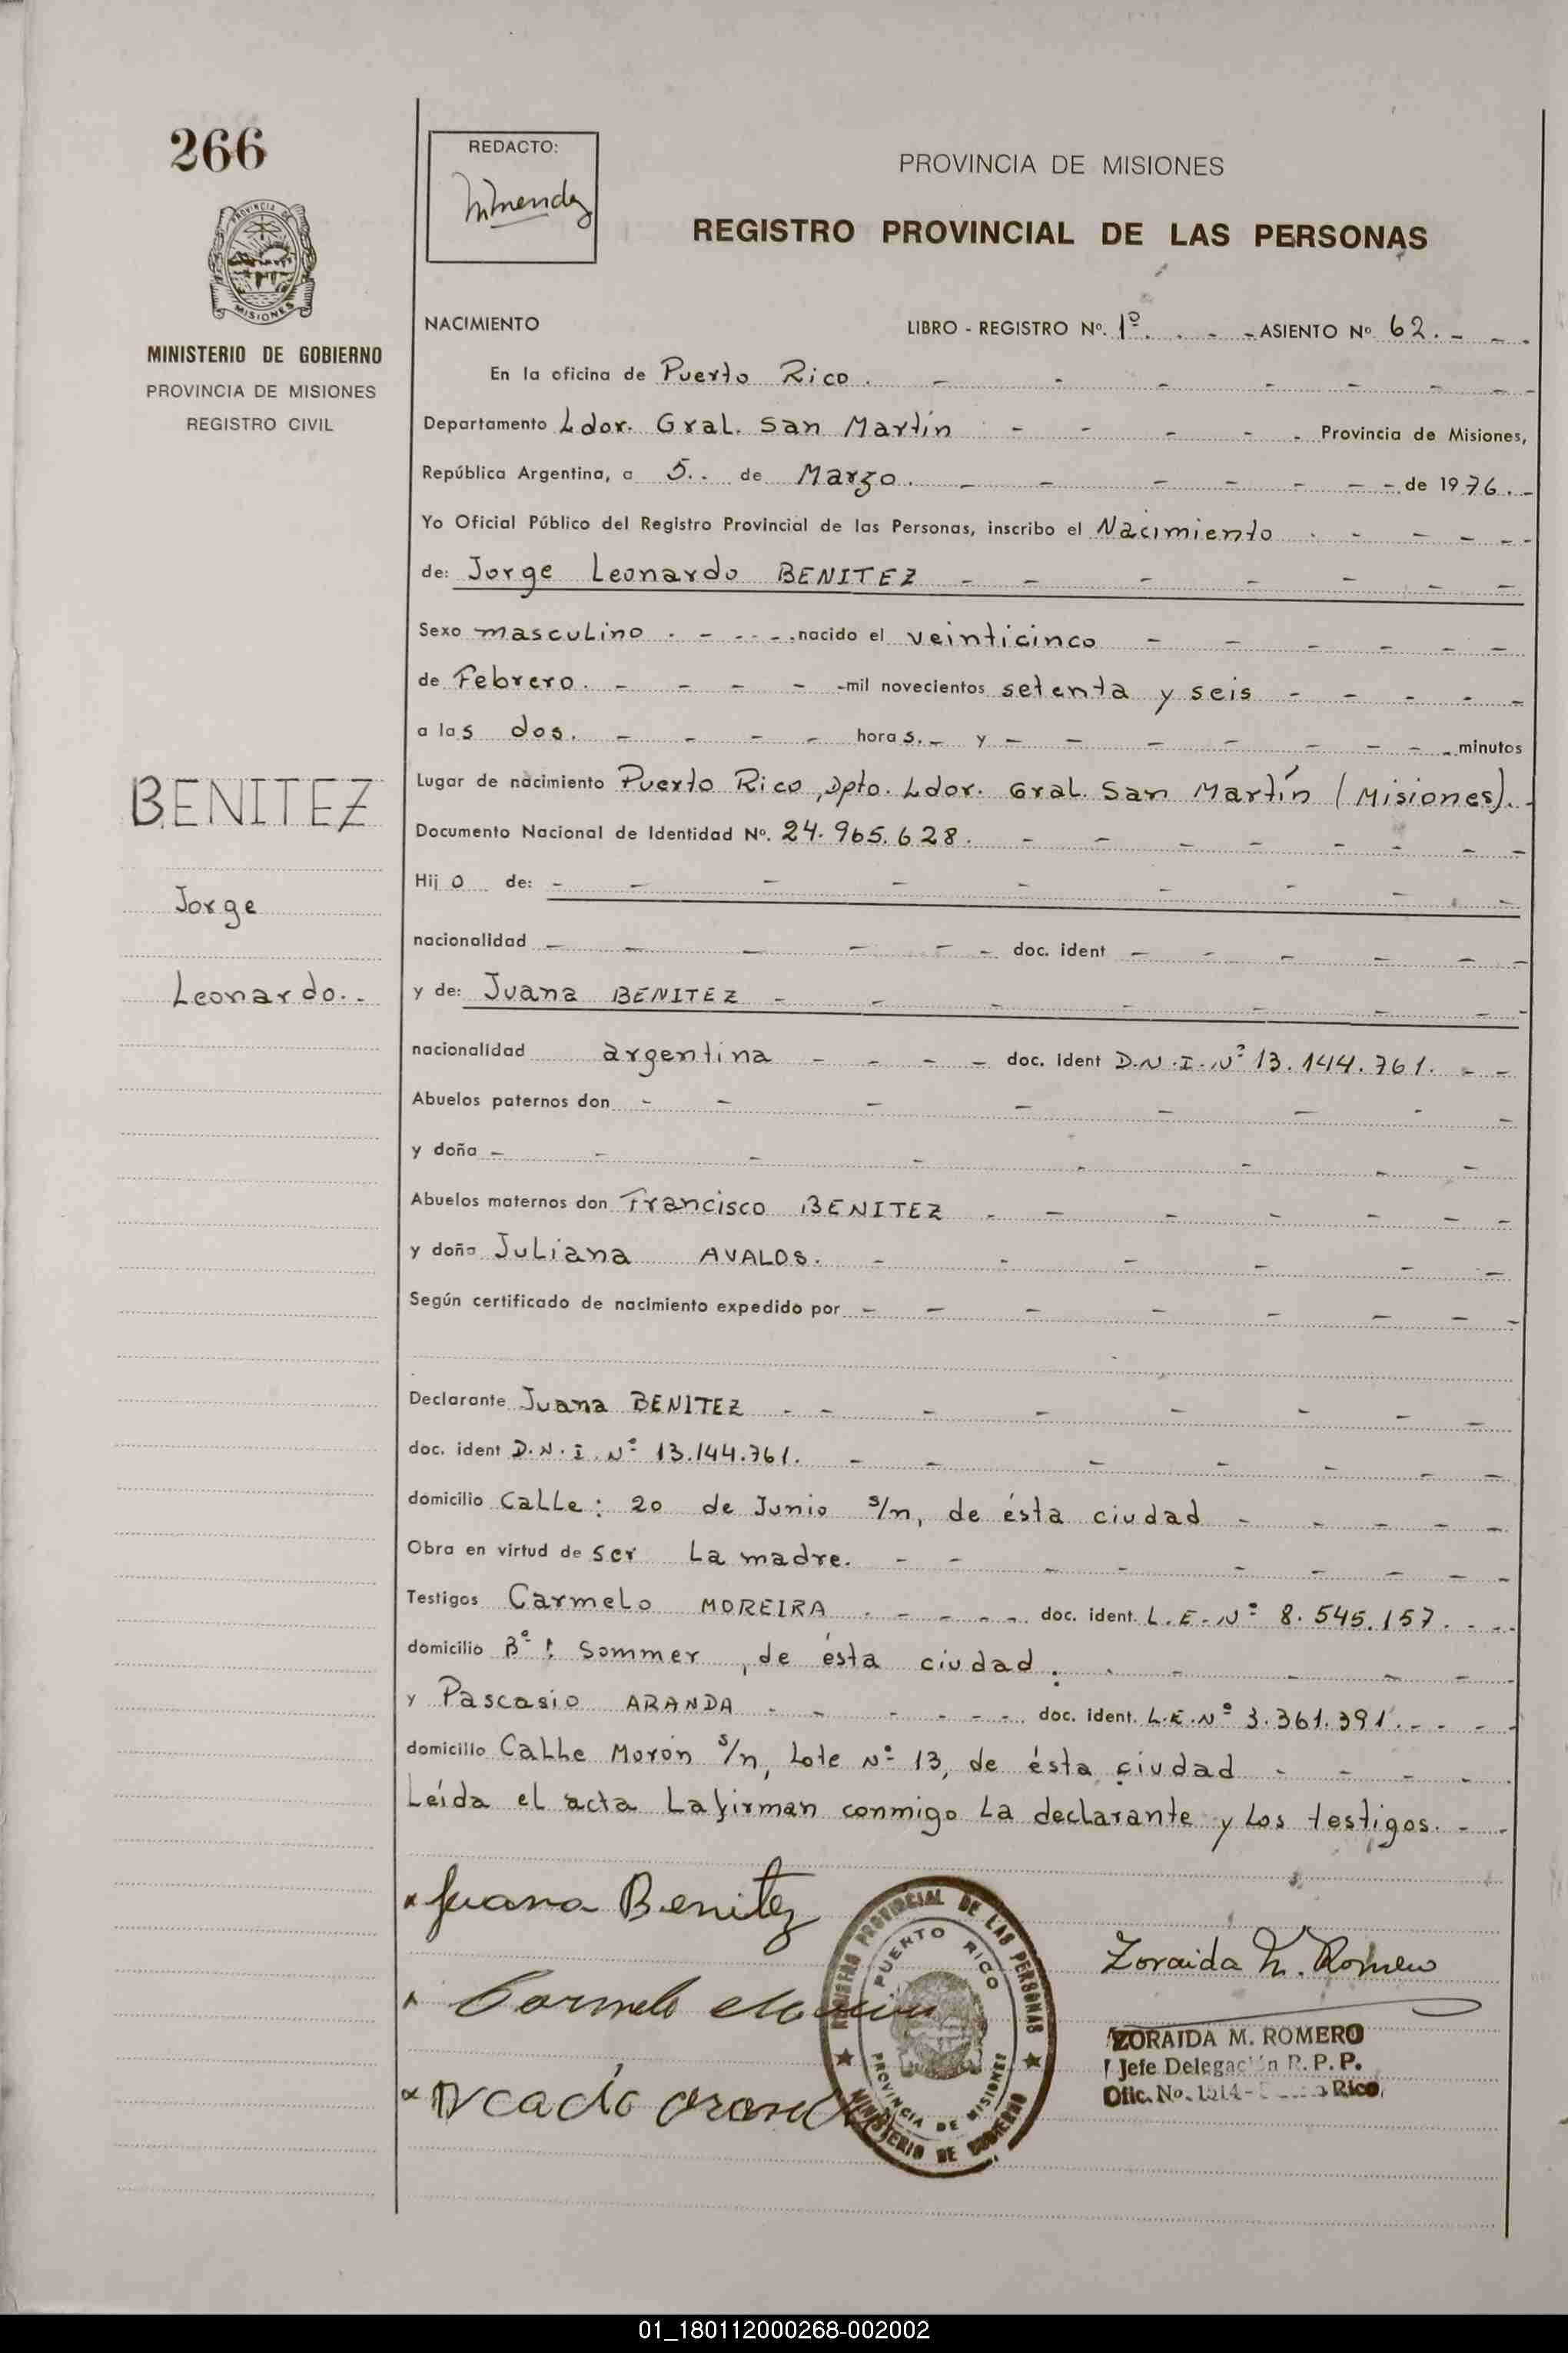 266
REDACTO:
PROVINCIA DE MISIONES
REGISTRO PROVINCIAL DE LAS PERSONAS
PROVINCIA DE
MISIONES
MINISTERIO DE GOBIERNO
PROVINCIA DE MISIONES
REGISTRO CIVIL
NACIMIENTO LIBRO - REGISTRO Nº. 1º. - - ASIENTO Nº 62. - - .
En la oficina de Puerto Rico. - - - - - - -
Departamento Ldor. Gral. San Martín - - - - . Provincia de Misiones,
República Argentina, a 5.. de Marzo. - - - - - - - de 1976. -
Yo Oficial Público del Registro Provincial de las Personas, inscribo el Nacimiento - - - - - -
de: Jorge Leonardo BENITEZ - - - - - - -
Sexo masculino . - - - - . nacido el veinticinco - - - - - -
de Febrero. - - - - - mil novecientos setenta y seis - - - - -
a las dos. - - - - horas. - y - - - - - - - - minutos
BENITEZ
Jorge
Leonardo. -
Lugar de nacimiento Puerto Rico, Dpto. Ldor. Gral. San Martín (Misiones). -
Documento Nacional de Identidad Nº. 24.965.628. - - - - - - - -
Hijo de: - - - - - - - - -
nacionalidad - - - - - - doc. ident - - - - - -
y de: Juana BENITEZ - - - - - - - -
nacionalidad argentina - - - - doc. ident D.N.I. Nº 13.144.761. - -
Abuelos paternos don - - - - - - - -
y doña - - - - - - - -
Abuelos maternos don Francisco BENITEZ - - - - - - -
y doña Juliana AVALOS. - - - - - -
Según certificado de nacimiento expedido por - - - - - - - -
Declarante Juana BENITEZ - - - - - - - -
doc. ident D.N.I. Nº 13.144.761. - - - - - - -
domicilio Calle: 20 de Junio s/n, de ésta ciudad - - - - -
Obra en virtud de ser La madre. - - - - - - - -
Testigos Carmelo MOREIRA . - - - - doc. ident. L.E. Nº 8.545.157. - - -
domicilio Bº: Sommer, de ésta ciudad. . - - - -
y Pascasio ARANDA - - - - - - doc. ident. L.E. Nº 3.361.391. - - - -
domicilio Calle Morón s/n, Lote Nº 13, de ésta ciudad - - - -
Leída el acta La firman conmigo La declarante y Los testigos. - -
Juana Benitez
Zoraida M. Romero
Carmelo
REGISTRO PROVINCIAL DE LAS PERSONAS
PUERTO RICO
PROVINCIA DE MISIONES
MINISTERIO DE GOBIERNO
ZORAIDA M. ROMERO
Jefe Delegación R. P. P.
Ofic. No. 1514 - Rico
01_180112000268-002002